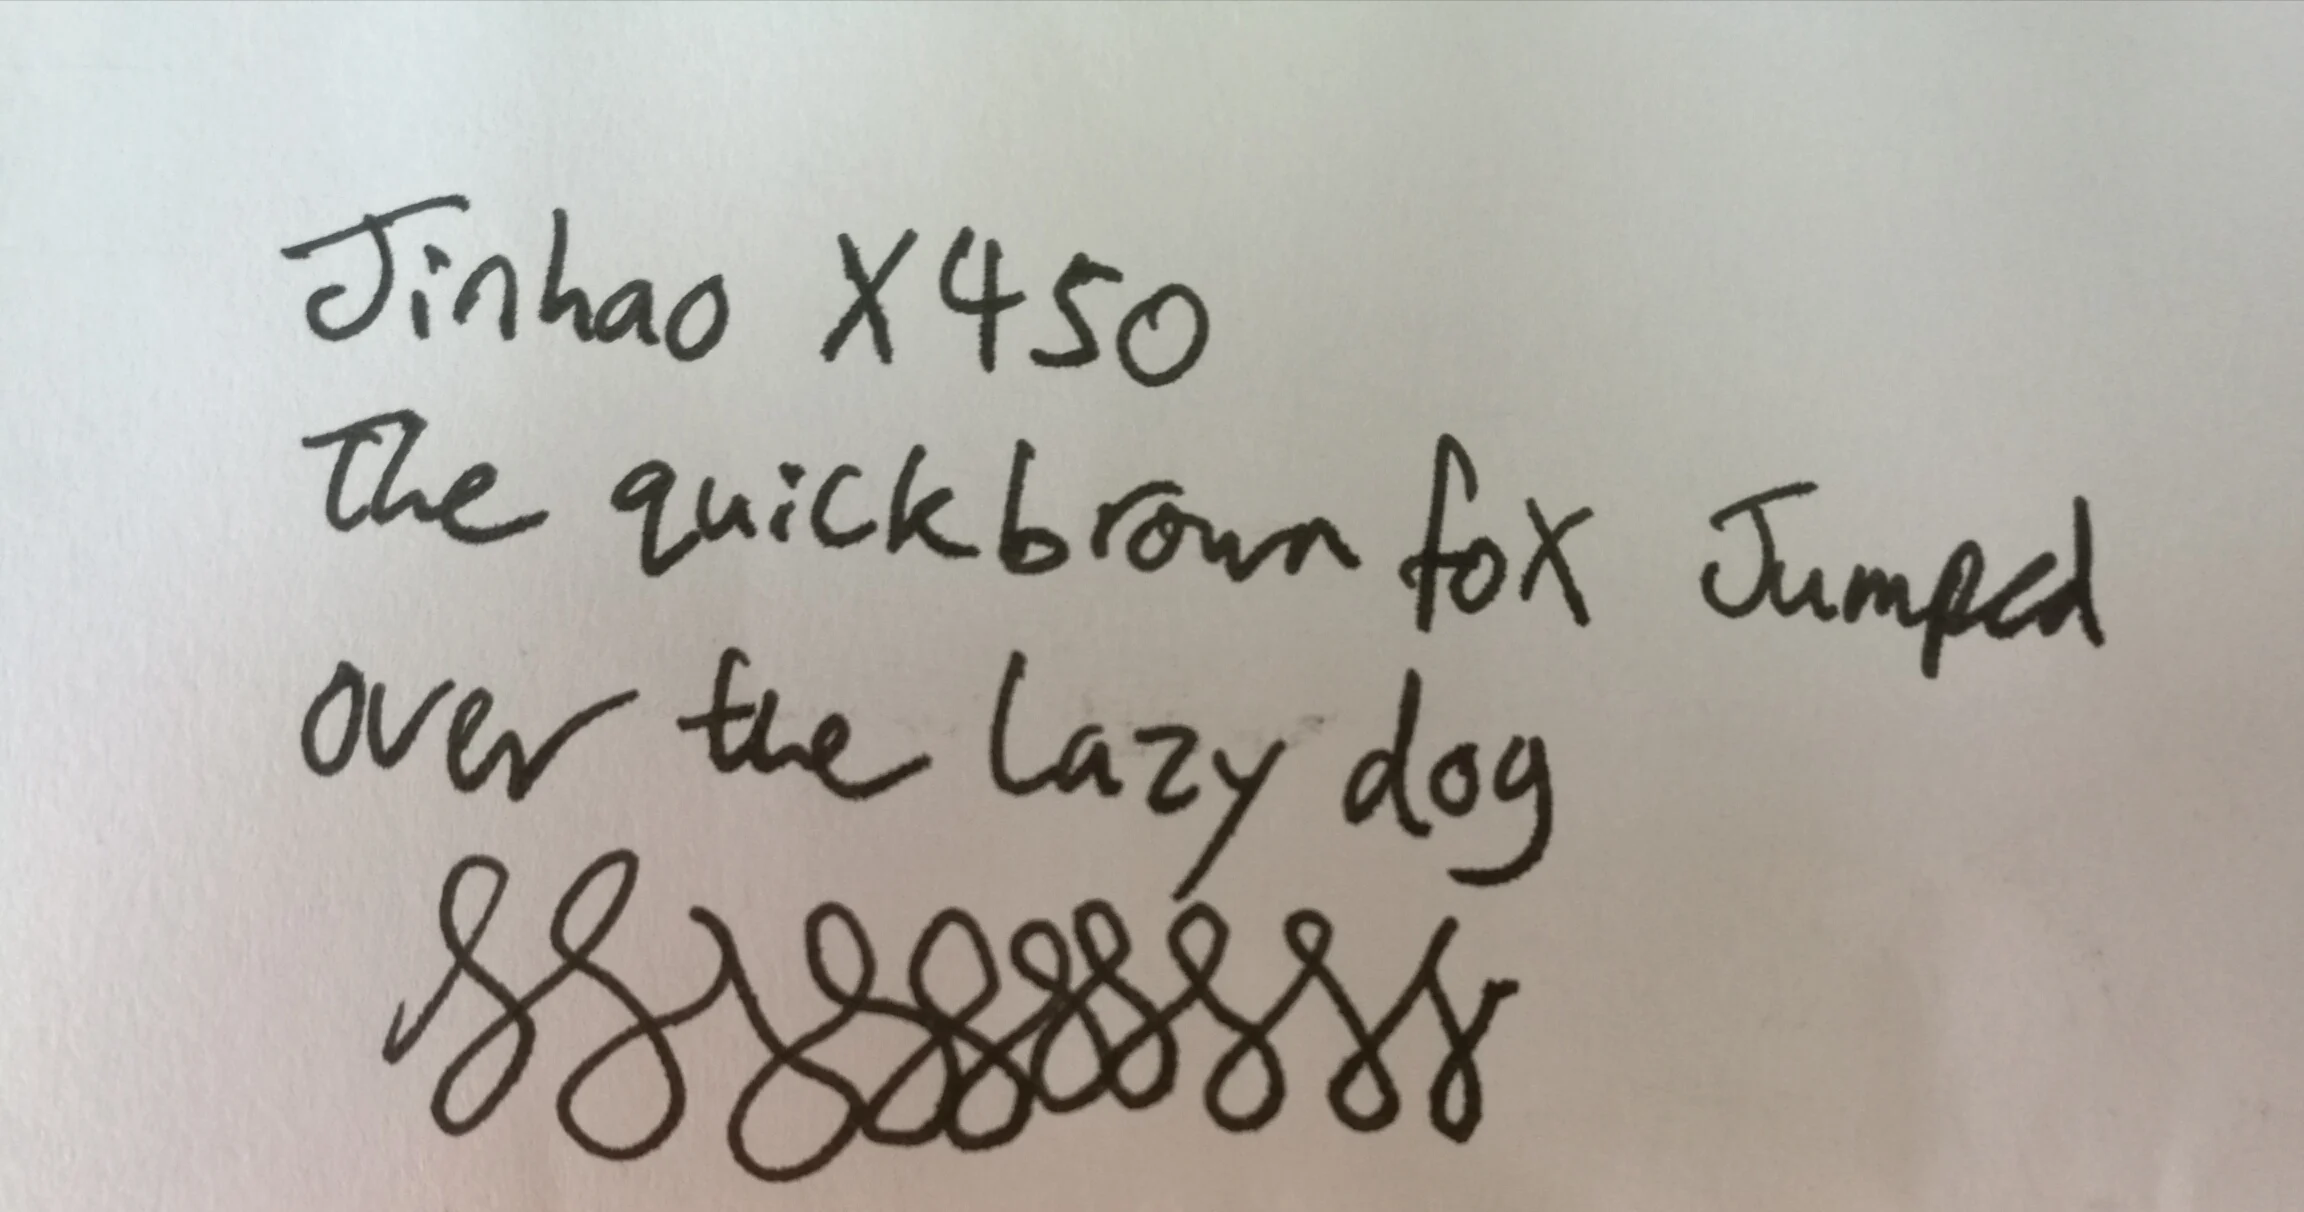 Jinhao X450
The quick brown fox Jumped
over the lazy dog